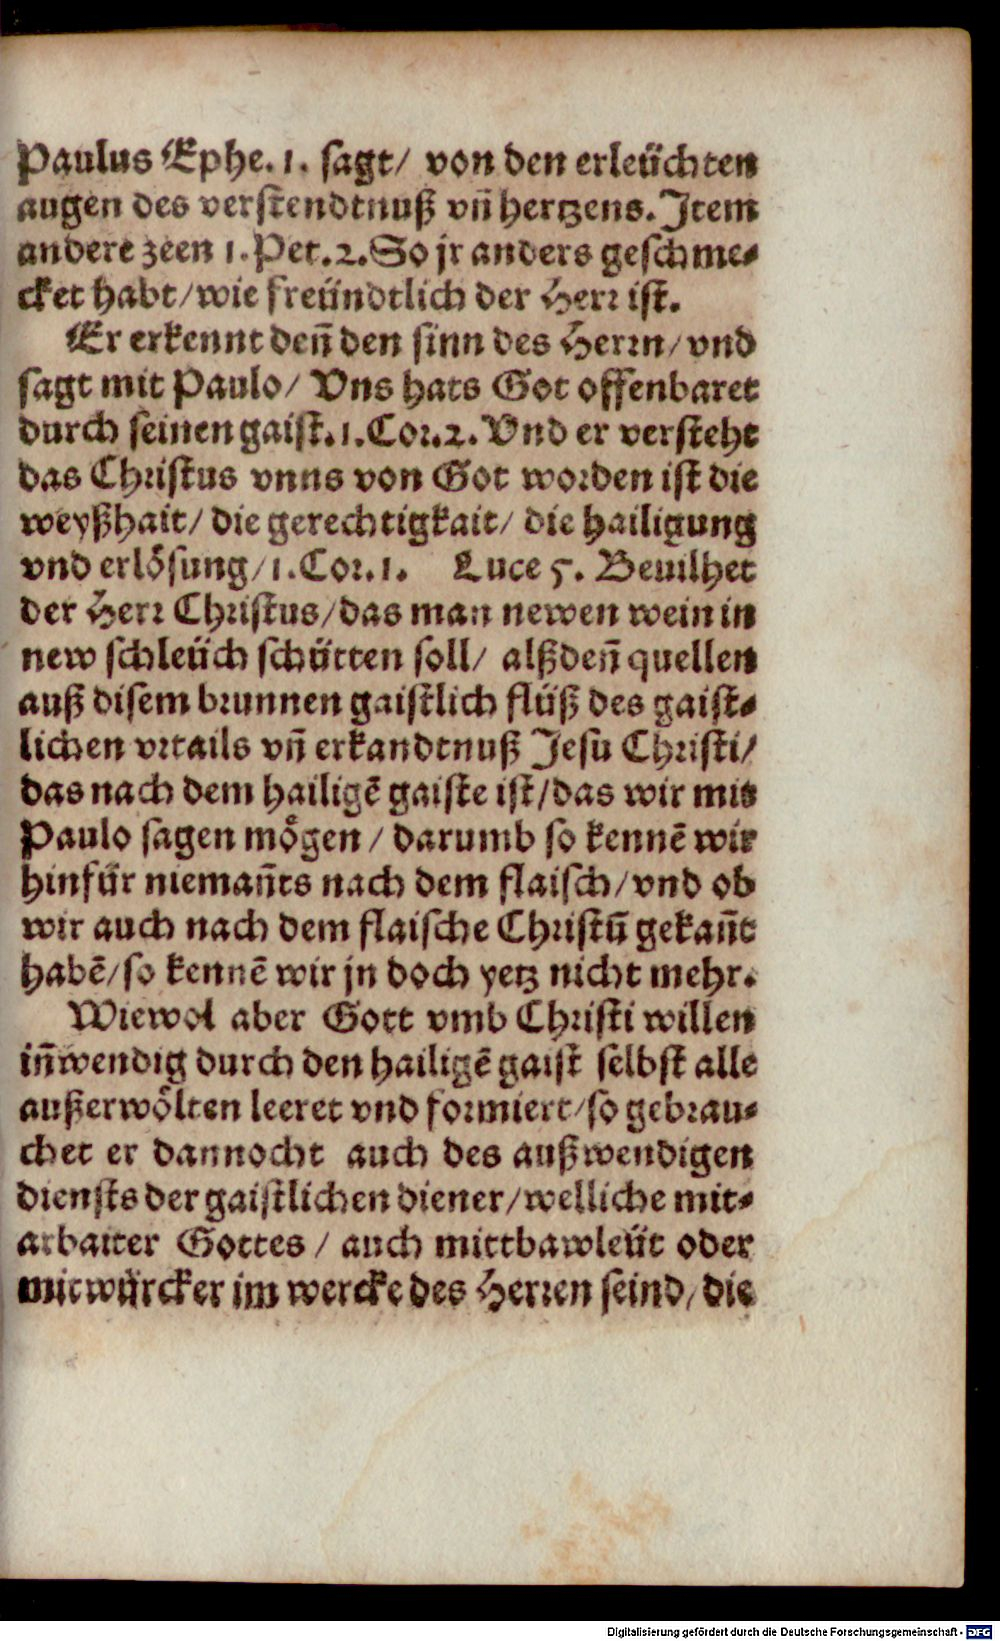 Paulus Ephe. 1. sagt/ von den erleüchten
augen des verstendtnuß vn̄ hertzens. Item
andere zeen 1. Pet. 2. So jr anders geschme-
cket habt/ wie freündtlich der Herr ist.
Er erkennt deñ den sinn des Herrn/ vnd
sagt mit Paulo/ Vns hats Got offenbaret
durch seinen gaist. 1. Cor. 2. Vnd er versteht
das Christus vnns von Got worden ist die
weyßhait/ die gerechtigkait/ die hailigung
vnd erlösung/ 1. Cor. 1. Luce 5. Beuilhet
der Herr Christus/ das man newen wein in
new schleüch schütten soll/ alßdeñ quellen
auß disem brunnen gaistlich flüß des gaist-
lichen vrtails vn̄ erkandtnuß Jesu Christi/
das nach dem hailigē gaiste ist/ das wir mit
Paulo sagen mögen/ darumb so kennē wir
hinfür niemañts nach dem flaisch/ vnd ob
wir auch nach dem flaische Christū gekañt
habē/ so kennē wir jn doch yetz nicht mehr.
Wiewol aber Gott vmb Christi willen
iñwendig durch den hailigē gaist selbst alle
außerwölten leeret vnd formiert/ so gebrau-
chet er dannocht auch des außwendigen
diensts der gaistlichen diener/ welliche mit-
arbaiter Gottes/ auch mittbawleüt oder
mitwürcker im wercke des Herren seind/ die
Digitalisierung gefördert durch die Deutsche Forschungsgemeinschaft - DFG